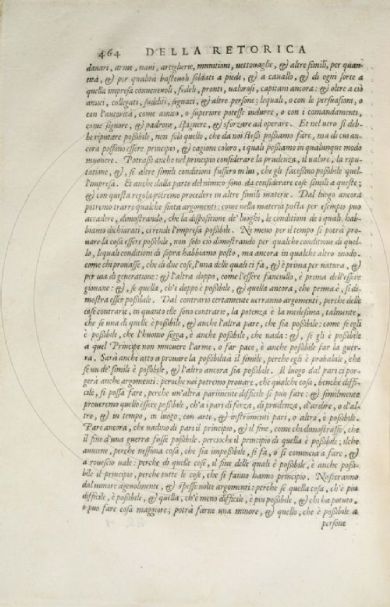 464 DELLA RETORICA
danari, armi, navi, artiglierie, munitioni, vettovaglie, & altre simili, per quan-
tità, & per qualità bastevoli soldati a piede, & a cavallo, & di ogni sorte a
quella impresa convenevoli, fedeli, pronti, valorosi, capitani ancora: & oltre a ciò
amici, collegati, sudditi, & altre persone; le quali, o con le persuasioni, o
con l'autorità, come amico, o superiore potesse inducere, o con i comandamenti,
come signore, & padrone, spignere, & sforzare ad operare. Et nel vero si deb-
be riputare possibile, non sol quello, che da noi stessi possiamo fare, ma di cui an-
cora possino essere principio, & cagione coloro, i quali possiamo in qualunque modo
muovere. Potrassi anche nel principio considerare la prudenza, il valore, la ripu-
tatione, &, se altre simili conditioni fussero in lui, che gli facessino possibile quel-
l'impresa. Et anche dalla parte del nimico sono da considerare cose simili a queste;
& con questa regola potremo procedere in altre simili materie. Dal luogo ancora
potremo trarre qualche sorte argomenti; come nella materia posta per esempio può
accadere, dimostrando, che la dispositione de' luoghi, le conditioni de i quali, hab-
biamo dichiarati, ci rende l'impresa possibile. Ne meno per il tempo si potrà pro-
vare la cosa essere possibile, non solo ciò dimostrando per qualche conditione di quel-
lo, le quali conditioni di sopra habbiamo posto, ma ancora in qualche altro modo.
come chi provasse, che di due cose, l'una delle quali si fa, & è prima per natura, &
per via di generatione: & l'altra doppo, come l'essere fanciullo, è prima dell'essere
giovane: &, se quella, ch'è doppo è possibile, & quella ancora, che prima è, si di-
mostra esser possibile. Dal contrario certamente verranno argomenti, perche delle
cose contrarie, in quanto elle sono contrarie, la potenza è la medesima, talmente,
che se una di quelle è possibile, & anche l'altra pare, che sia possibile: come se egli
è possibile, che l'huomo segga, è anche possibile, che vada: &, se gli è possibile
a quel Principe non muovere l'arme, o far pace, è anche possibile far la guer-
ra. Sarà anche atto a provare la possibilità il simile, perche egli è probabile, che
se un de' simili è possibile, & l'altro ancora sia possibile. Il luogo dal pari ci por-
gera anche argomenti: perche noi potremo provare, che qualche cosa, benche diffi-
cile, si possa fare, perche un'altra parimente difficile si può fare: & similmente
proveremo quello essere possibile, ch'a i pari di forza, di prudenza, d'ardire, o d'al-
tro, & in tempo, in luogo, con arte, & instrumenti pari, o altra, è possibile.
Pare ancora, che vadino di pari il principio, & il fine, come chi dimostrasse, che
il fine d'una guerra fusse possibile, percioche il principio di quella è possibile: il che
avviene, perche nessuna cosa, che sia impossibile, si fa, o si comincia a fare, &
a rovescio vale: perche di quelle cose, il fine delle quali è possibile, è anche possi-
bile il principio, perche tutte le cose, che si fanno hanno principio. Nasceranno
dal minore agevolmente, & spesse volte argomenti: perche se quella cosa, ch'è più
difficile, è possibile, & quella, ch'è meno difficile, è piu possibile, & chi ha potuto,
o può fare cosa maggiore; potrà farne una minore, & quello, che è possibile a
persone